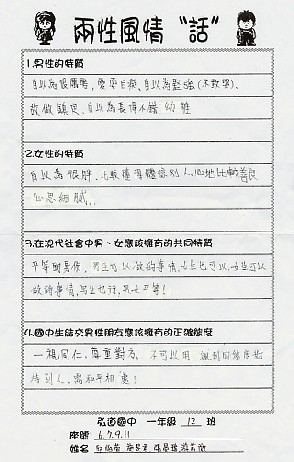 兩性風情“話”
1.男性的特質
自以為很厲害,愛耍白痴,自以為堅強(不敢哭)
故做鎮定,自以為長得不錯 幼稚
2.女性的特質
自以為很胖,比較懂得體諒別人,心地比較善良
心思細膩..
3.在現代社會中男、女應該擁有的共同特質
平等
男生可以做的事情,女生也可以,女生可以
做的事情,男生也行,男女平等!
4.國中生結交異性朋友應該擁有的正確態度
一視同仁,尊重對方,不可以用
待別人,需和平相處!
弘道國中 一年級 12 班
座號 6.7.9.11
姓名